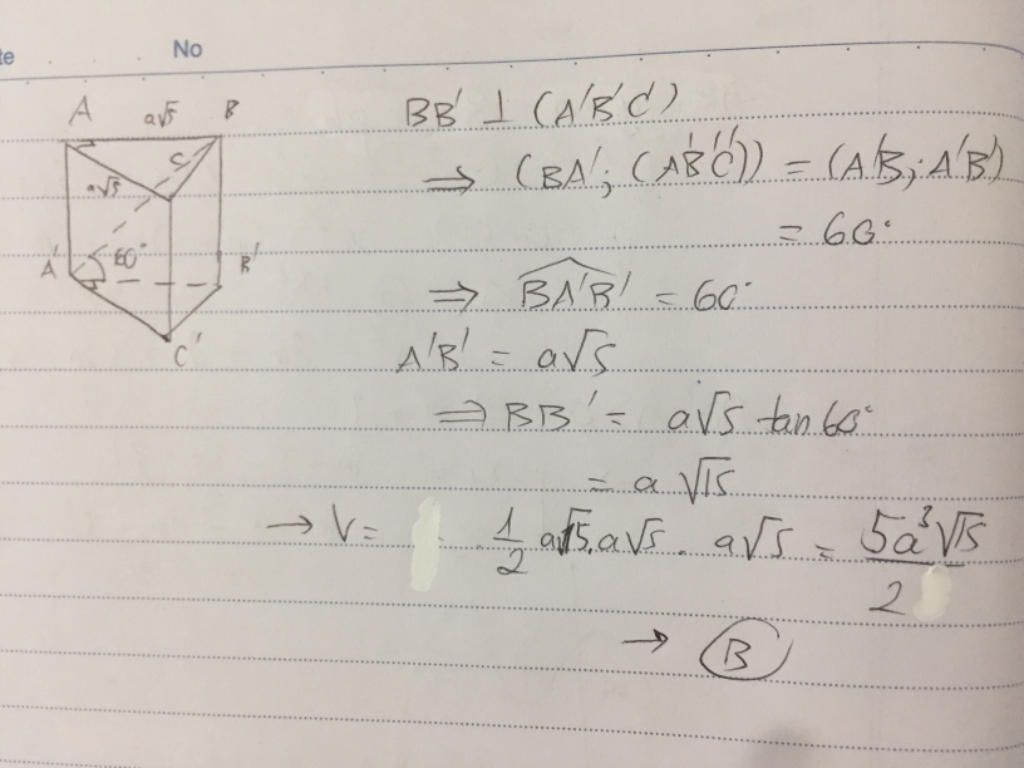 te
No
A
a√5
B
C
a√5
A'
60°
B'
C'
BB' ⊥ (A'B'C')
⇒ (BA'; (A'B'C')) = (A'B; A'B')
= 60°
⇒ BA'B' = 60°
A'B' = a√5
⇒ BB' = a√5 tan60°
= a √15
→ V = . 1/2 a√15. a√5 . a√5 = 5a³√15/2
→ B